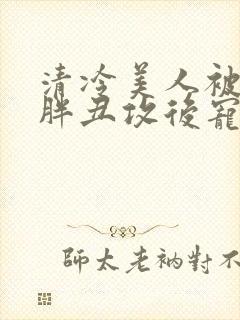 清冷美人被
胖丑攻後寵
師太老衲對不